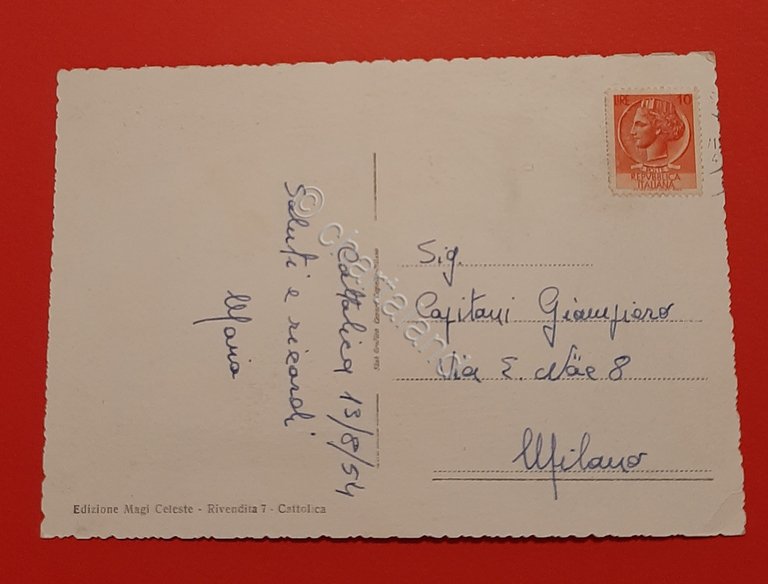 LIRE 10
REPVBBLICA
ITALIANA
Cattolica 13/8/54
Saluti e ricordi
Maria
Sig.
Capitani Giampiero
Via E. Nöe 8
Milano
Edizione Magi Celeste - Rivendita 7 - Cattolica